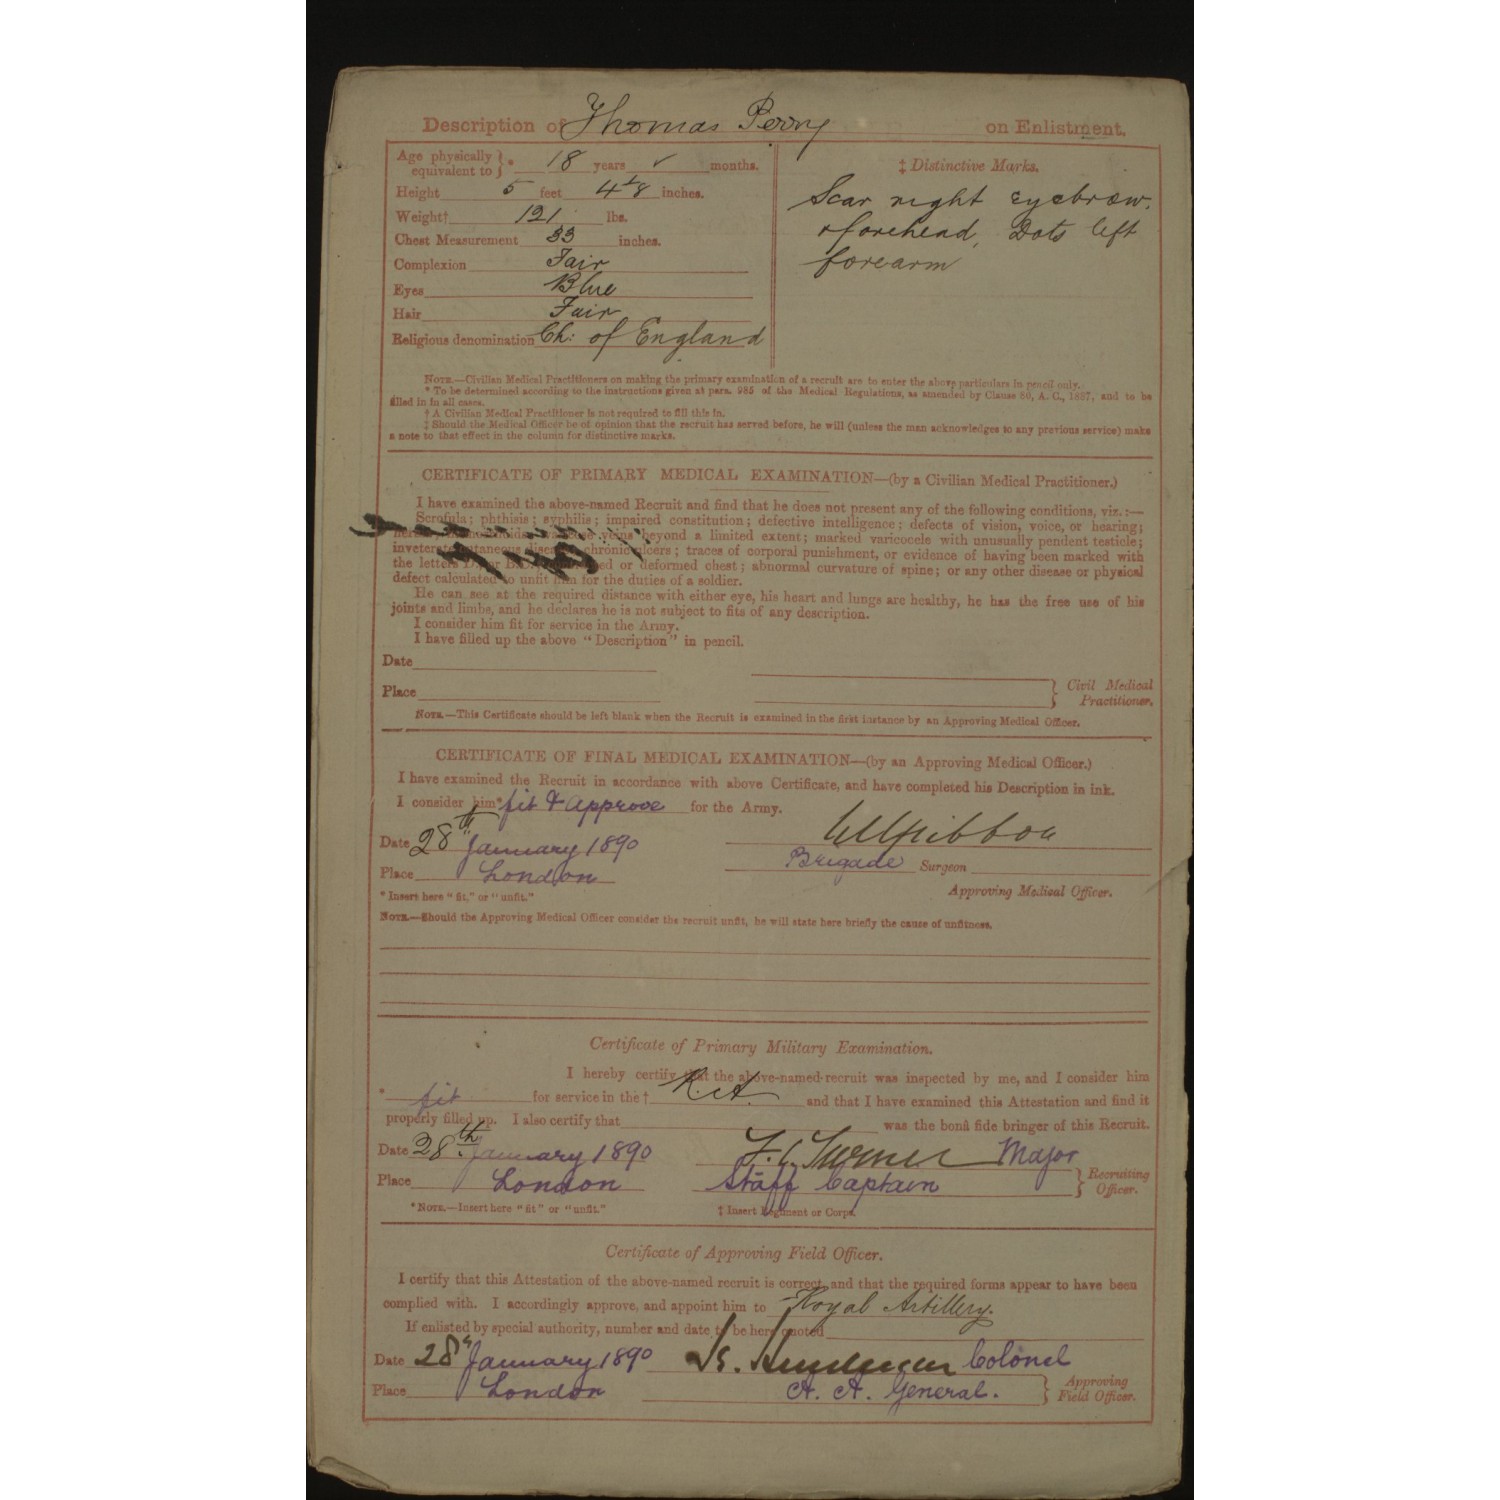 Description of Thomas Perry on Enlistment.
Age physically equivalent to } * 18 years ✓ months.
Height 5 feet 4 1/8 inches.
Weight† 121 lbs.
Chest Measurement 33 inches.
Complexion Fair
Eyes Blue
Hair Fair
Religious denomination Ch: of England
‡ Distinctive Marks.
Scar right eyebrow.
& forehead, Dots left
forearm
NOTE.—Civilian Medical Practitioners on making the primary examination of a recruit are to enter the above particulars in pencil only.
* To be determined according to the instructions given at para. 985 of the Medical Regulations, as amended by Clause 80, A. C., 1887, and to be
filled in in all cases.
† A Civilian Medical Practitioner is not required to fill this in.
‡ Should the Medical Officer be of opinion that the recruit has served before, he will (unless the man acknowledges to any previous service) make
a note to that effect in the column for distinctive marks.
CERTIFICATE OF PRIMARY MEDICAL EXAMINATION—(by a Civilian Medical Practitioner.)
I have examined the above-named Recruit and find that he does not present any of the following conditions, viz. :—
Scrofula; phthisis; syphilis; impaired constitution; defective intelligence; defects of vision, voice, or hearing;
hernia; veins beyond a limited extent; marked varicocele with unusually pendent testicle;
inveterate cutaneous disease; chronic ulcers; traces of corporal punishment, or evidence of having been marked with
the letters D. or B.C.; or deformed chest; abnormal curvature of spine; or any other disease or physical
defect calculated to unfit him for the duties of a soldier.
He can see at the required distance with either eye, his heart and lungs are healthy, he has the free use of his
joints and limbs, and he declares he is not subject to fits of any description.
I consider him fit for service in the Army.
I have filled up the above "Description" in pencil.
Date
Place
Civil Medical
Practitioner.
NOTE.—This Certificate should be left blank when the Recruit is examined in the first instance by an Approving Medical Officer.
CERTIFICATE OF FINAL MEDICAL EXAMINATION—(by an Approving Medical Officer.)
I have examined the Recruit in accordance with above Certificate, and have completed his Description in ink.
I consider him* fit & approve for the Army.
Date 28th January 1890
Place London Brigade Surgeon
* Insert here "fit," or "unfit." Approving Medical Officer.
NOTE.—Should the Approving Medical Officer consider the recruit unfit, he will state here briefly the cause of unfitness.
Certificate of Primary Military Examination.
I hereby certify that the above-named recruit was inspected by me, and I consider him
* fit for service in the † R.A. and that I have examined this Attestation and find it
properly filled up. I also certify that was the bonâ fide bringer of this Recruit.
Date 28th January 1890 Turner Major
Place London Staff Captain } Recruiting Officer.
* NOTE.—Insert here "fit" or "unfit." ‡ Insert Regiment or Corps.
Certificate of Approving Field Officer.
I certify that this Attestation of the above-named recruit is correct, and that the required forms appear to have been
complied with. I accordingly approve, and appoint him to Royal Artillery.
If enlisted by special authority, number and date to be here quoted
Date 28th January 1890 Colonel
Place London A. A. General. } Approving Field Officer.